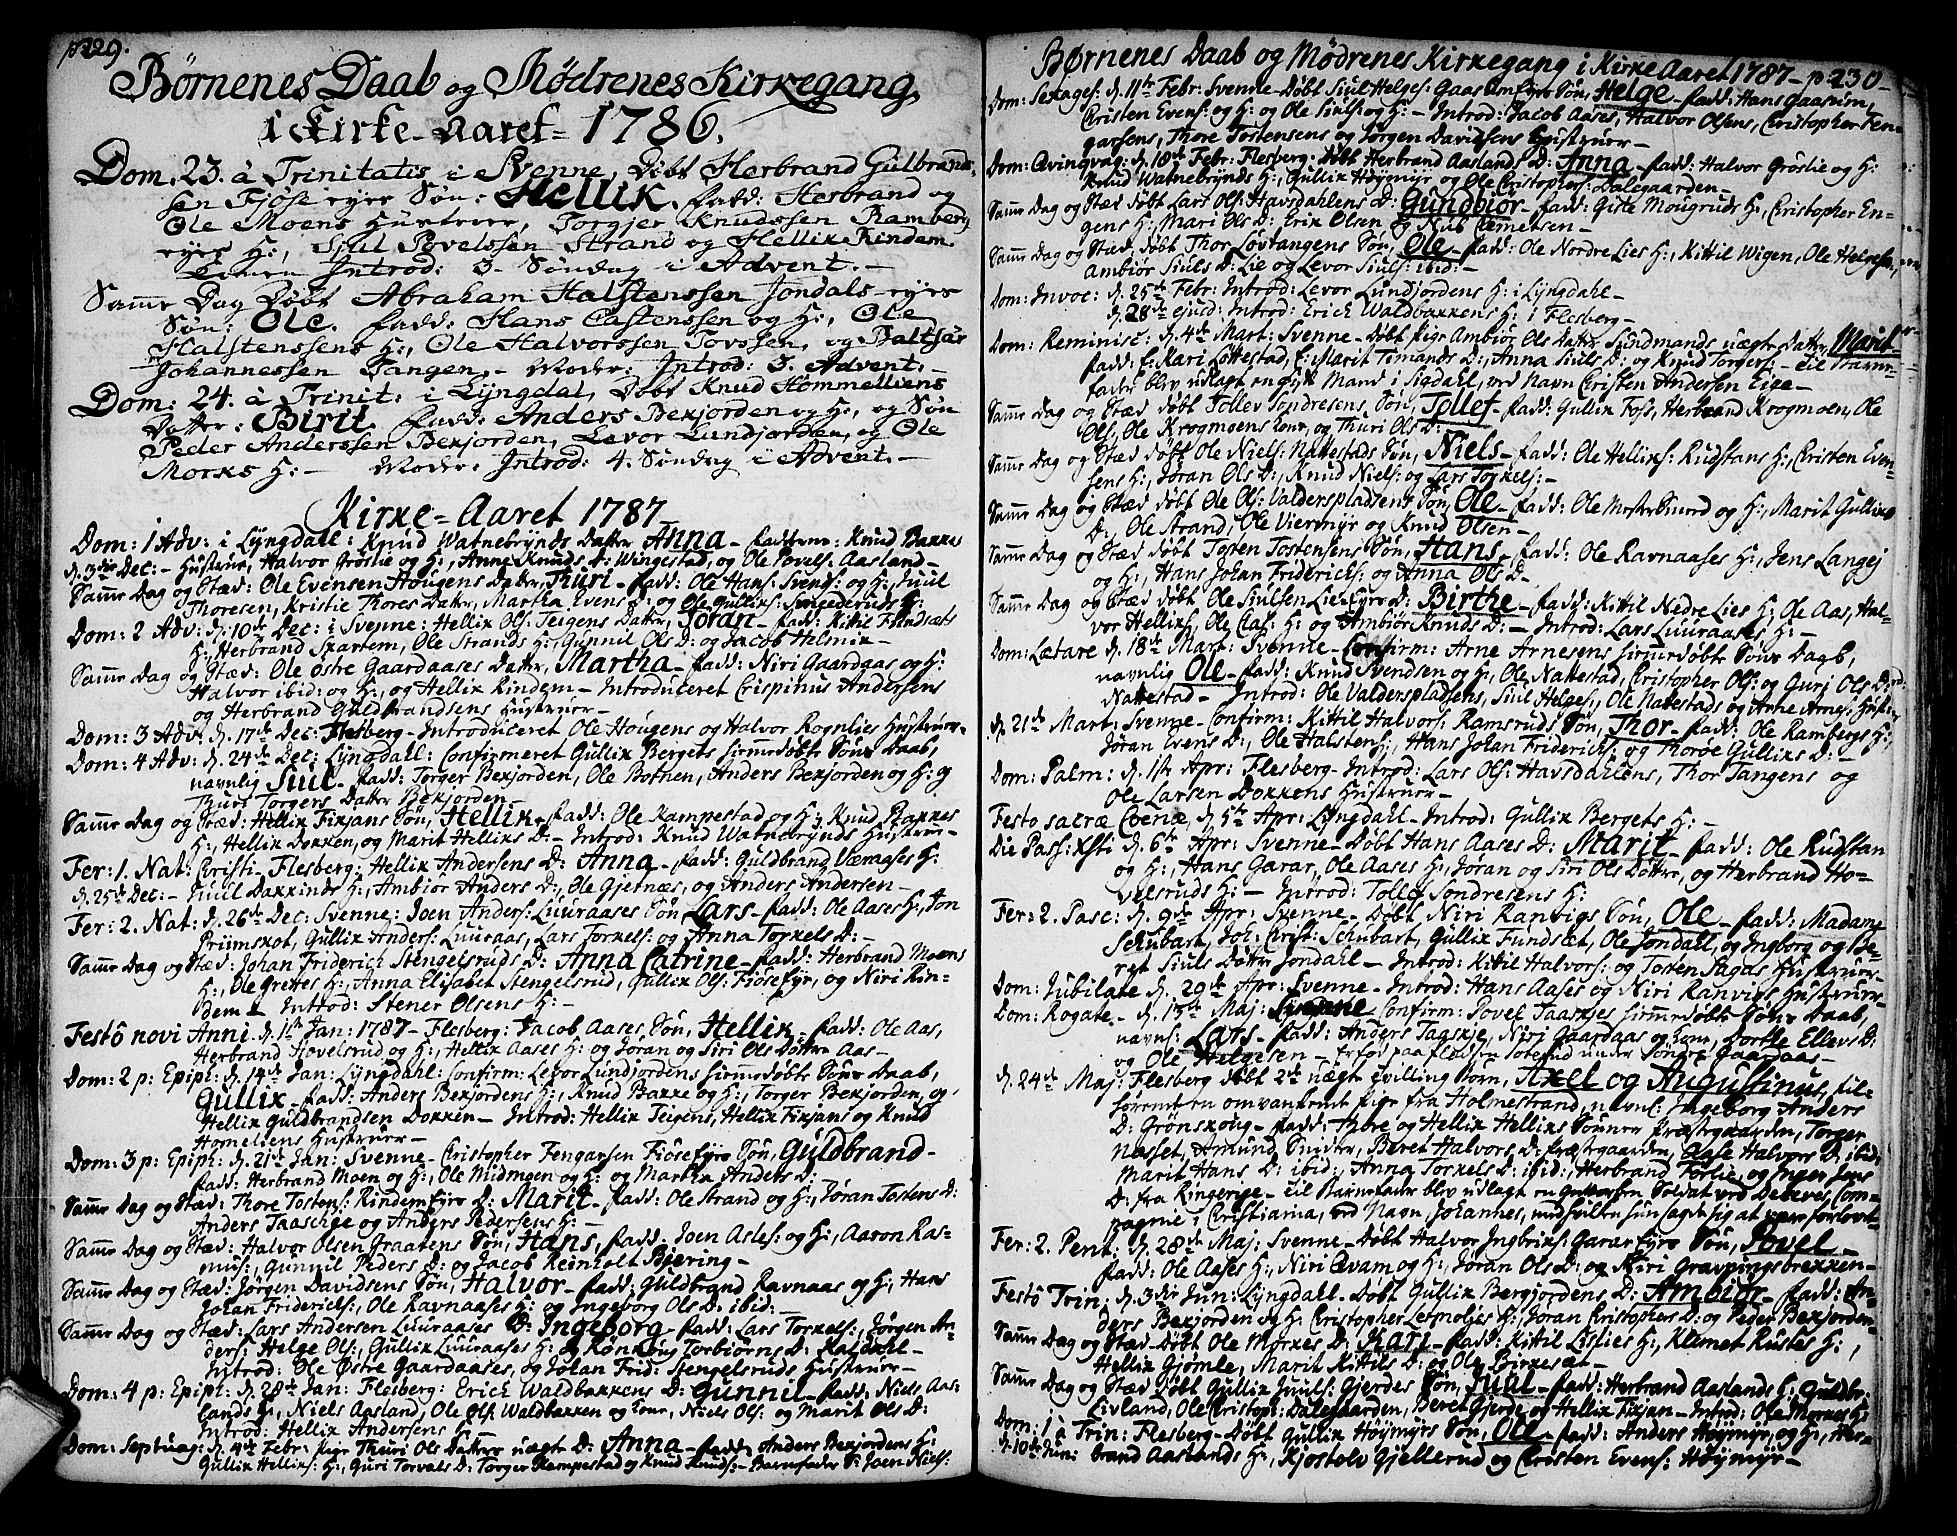 p 229.
Børnenes Daab og Mødrenes Kirkegang
i Kirke-Aaret = 1786.
Dom. 23. à Trinitatis i Svenne, Døbt Herbrand Gulbrands-
sen Fjøse eyes Søn: Hellik. fadd: Herbrand og
Ole Moens Hustruer, Torgjer Knudssen Ramberg
eyes H:, Siul Povelssen Strand og Hellik Rindem.
Introd: 3. Søndag i Advent.-
Samme Dag Døbt Abraham Halstenssen Jondals eyes
Søn: Ole. fadd: Hans Castenssen og H:, Ole
Halstenssens H:, Ole Halvorssen Tovssen, og Baltsar
Johannessen Tangen.- Moder: Introd: 3. Advent.-
Dom: 24. à Trinit: i Lyngdal, Døbt Knud Hommeliens
Datter: Birit. fadd: Anders Bexjorden og H:, og Søn
Peder Anderssen Bexjorden, Levor Lundjorden, og Ole
Morks H:- Moder: Introd: 4. Søndag i Advent.-
Kirke-Aaret 1787
Dom: 1 Adv: i Lyngdahl: Knud Watnebrynds Datter Anna- fadderne: Knud Bakkes
d. 3die Dec:- Hustrue, Halvor Grøslie og H:, Anne Knuds D: Wingestad, og Ole Povels: Aasland-
Samme Dag og Stæd: Ole Evensen Hougens Datter, Thuri- fadd: Ole Hans: Svends: og H:, Juul
Thoresen, Kristie Thores Datter, Martha Evens D: og Ole Gulliks: Svegederuds H:
Dom: 2 Adv: d. 10de Dec: i Svenne: Hellix Ols: Teigens Datter, Joran- fadd: Kittil Fundsæts
H:, Herbrand Skartem, Ole Strands H:, Gunnil Ols D: og Jacob Helmix-
Samme Dag og Stæd: Ole østre Gaardaases Datter, Martha- fadd: Niri Gaardaas og H:
Halvor ibid: og H:, og Hellix Rindem- Introduceret Crispinus Andersens
og Herbrand Guldbrandsens Hustruer-
Dom: 3 Adv: d. 17de Dec: Flesberg- Introduceret Ole Hougens og Halvor Rognlies Hustruer-
Dom: 4 Adv: d. 24de Dec: Lyngdahl: Confirmeret Gullix Bergets hiemmedøbte Søns Daab,
navnlig Siul- fadd: Torger Bexjorden, Ole Botnen, Anders Bexjorden og H: og
Thuri Torgers Datter Bexjorden-
Samme Dag og Stæd: Hellix Fixjans Søn, Hellik- fadd: Ole Kampestad og H:, Knud Bakkes
H:, Hellix Dokken, og Marit Hellix D:- Introd: Knud Watnebrynds Hustrue-
Fer: 1. Nat: Christi- Flesberg: Hellix Andersens D: Anna- fadd: Guldbrand Væraases H:
d. 25de Dec:- Juul Dakkinds H:, Ambiør Anders D:, Ole Gjernæs, og Anders Andersen-
Fer: 2. Nat: d. 26de Dec: Svenne: Joen Anders: Luuraases Søn Lars- fadd: Ole Aases H:, Jon
Priimskot, Gullix Anders: Luuraas, Lars Torkels: og Anna Torkels D:-
Samme Dag og Stæd: Johan Friderich Stengelsruds D: Anna Catrine- fadd: Herbrand Moens
H:, Ole Gretes H:, Anna Elisabet Stengelsrud, Gullix Ols: Fiøseeyr, og Niri Rin-
dem- Introd: Stener Olsens H:-
Festô novi Anni, d. 1ste Jan: 1787- Flesberg: Jacob Aases Søn, Hellik- fadd: Ole Aas,
Herbrand Hovelsrud og H:, Hellix Aases H: og Jøran og Siri Ols Døttre Aas-
Dom: 2 p: Epiph: d. 14de Jan: Lyngdahl: Confirm: Levor Lundjordens hiemmedøbte Søns Daab,
Gullik- fadd: Anders Bexjordens H:, Knud Bakke og H:, Torger Bexjorden, og
Hellix Guldbrandsen Dokken- Introd: Hellix Teigens, Hellix Fixjans og Knud
Homeliens Hustruer-
Dom: 3 p: Epiph: d. 21de Jan: Svenne- Christopher Fengarsen Fiøseeyes Søn, Guldbrand-
fadd: Herbrand Moen og H:, Ole Midmoen og H: og Martha Anders D:
Samme Dag og Stæd: Thore Tostens: Rindem Eyes D: Marit- fadd: Ole Strand og H:, Jøran Tostens D:
Anders Taaschge og Anders Pedersens H:-
Samme Dag og Stæd: Halvor Olsen Jraatens Søn, Hans, fadd: Joen Asles: og H:, Aaron Ras-
mus:, Gunnil Peders D: og Jacob Reinholt Bjering-
Samme Dag og Stæd: Jørgen Davidsens Søn, Halvor- fadd: Guldbrand Ravnaas og H:, Hans
Johan Friderichs:, Ole Ravnaases H: og Ingeborg Ols D: ibid:-
Samme Dag og Stæd: Lars Andersen Luuraases D: Ingeborg- fadd: Lars Torkels:, Jørgen An-
ders: Helge Ols:, Gullix Luuraases H: og Rønnoug Torbiørns D: Kaldahl-
Introd: Ole Østre Gaardaases, og Johan Frid: Stengelsruds Hustruer-
Dom: 4 p: Epiph: d. 28de Jan: Flesberg: Erich Waldbakkens D: Gunnil- fadd: Niels Aas-
lands H:, Niels Aasland, Ole Ols: Waldbakken og Kone, Niels Ols: og Marit Ols D:
Introd: Hellix Andersens H:-
Dom: Septuag: d. 4de Febr: Pige Thuri Ols Datter uægte D: Anna- fadd: Anders Bexjordens H:
Gullix Hellix: H:, Guri Torvals D: Torger Kampestad og Knud Knuds:- Barnefader: Joen Niels:
Børnenes Daab og Mødrenes Kirkegang i Kirke Aaret 1787- p: 230-
Dom: Sexages: d. 11te Febr: Svenne- Døbt Siul Helges: Gaasem Eyes Søn, Helge- fadd: Hans Gaasem,
Cristen Evens: og H: og Ole Siuls: og H:- Introd: Jacob Aases, Halvor Olsens, Christopher Fen-
garsens, Thore Tostensens og Jørgen Davidsens Hustruer-
Dom: Qvinqvag: d. 18de Febr: Flesberg- Døbt Herbrand Aaslands D: Anna- fadd: Halvor Grøslie og H:
Knud Watnebrynds H:, Gullix Høymyr og Ole Christophers: Dalegaarden-
Samme Dag og Stæd døbt Lars Ols: Havsdahlens D: Gundbiør- fadd: Giste Mougruds H:, Christopher En-
gens H:, Mari Ols D: Erik Olsen og Kub Clemetsen-
Samme Dag og Stæd, døbt Thor Løvtangens Søn, Ole- fadd: Ole Nordre Lies H:, Kittil Wigen, Ole Helgesen,
Ambiør Siuls D: Lie og Levor Siuls: ibid:-
Dom: Invoc: d. 25de Febr: Introd: Levor Lundjordens H: i Lyngdahl-
d. 28de ejusd: Introd: Erich Waldbakkens H: i Flesberg-
Dom: Reminisc: d. 4de Mart: Svenne- Døbt Pige Ambiør Ols Datter Sundmands uægte Datter, Marit-
fadd: E: Kari Løttestad, E: Marit Timands D:, Anna Siuls D: og Knud Torgers:- Til Barne-
fader blev udlagt en gift Mand i Sigdahl, ved Navn Cristen Andersen Eie-
Samme Dag og Stæd døbt Tollev Sondresens Søn, Tollef- fadd: Gullix Foss, Herbrand Krogmoen, Ole
Ols:, Ole Krogmoens Kone, og Thuri Ols D:-
Samme Dag og Stæd døbt Ole Niels: Nattestads Søn, Niels- fadd: Ole Hellix: Rudstans H:, Cristen Even-
sens H:, Jøran Ols D:, Knud Niels: og Lars Torkels:-
Samme Dag og Stæd døbt Ole Ols: Valderspladsens Søn, Ole- fadd: Ole Moster Smerd og H:, Marit Gullix
D:, Ole Strand, Ole Viermyr og Knud Olsen-
Samme Dag og Stæd døbt Tosten Tostensens Søn, Hans- fadd: Ole Ravnaases H:, Jens Langej
og H:, Hans Johan Friderichs: og Anna Ols D:-
Samme Dag og Stæd døbt Ole Siulsen Lie-Eyes D: Birthe- fadd: Kittil Nedre Lies H:, Ole Aas, Hal-
vor Hellix:, Ole Clas: H: og Ambiør Knuds D:- Introd: Lars Luuraases H:-
Dom: Lætare d. 18de Mart: Svenne- Confirm: Arne Arnesens hiemmedøbte Søns Daab,
navnlig Ole- fadd: Knud Svendsen og H:, Ole Nattestad, Cristopher Ols: og Guri Ols D:
Nattestad- Introd: Ole Valderspladsens, Siul Helges:, Ole Nattestads og Arne Arnes: Hustr:
d. 21de Mart: Svenne- Confirm: Kittil Halvors: Ramsruds Søn, Thor- fadd: Ole Rambergs H:,
Jøran Evens D:, Ole Halstens:, Hans Johan Friderichs: og Thoroe Gullix D:-
Dom: Palm: d. 1ste Apr: Flesberg- Introd: Lars Ols: Havsdahlens, Thor Tangens og
Ole Larsen Dokkens Hustruer-
Festo sacræ Coenæ, d. 5te Apr: Lyngdahl- Introd: Gullix Bergets H:-
Die Pass: Xsti d. 6te Apr: Svenne- Døbt Hans Aases D: Marit- fadd: Ole Rudstan
og H:, Hans Garar, Ole Aases H:, Jøran og Siri Ols Døttre, og Herbrand Ho-
velsruds H:- Introd: Tollef Sondresens H:
Fer: 2. Pasc: d. 9de Apr: Svenne- Døbt Niri Ranvigs Søn, Ole- fadd: Madame
Schubart, Joh: Christ: Schubart, Gullix Fundsæt, Ole Jondall, og Ingborg og Be-
ret Siuls Døttre Jondahl- Introd: Kittil Halvors: og Tosten Sagas Hustruer-
Dom: Jubilate d. 29de Apr: Svenne- Introd: Hans Aases og Niri Ranvigs Hustruer-
Dom: Rogate- d. 13de Maj: Svenne- Confirm: Povel Taaskjes hiemmedøbte Søns Daab,
navnl: Lars- fadd: Anders Taaskje, Niri Gaardaas og Kone, Dorthe Ellevs D:
og Ole Helgesen- Er før paa under Søndre Gaardaas-
d. 24de Maj: Flesberg døbt 2de uægte Tvilling Børn, Axel og Augustinus, til-
hørende en omvankende Pige fra Holmestrand, navnl: Ingeborg Anders
D: Grønskoug- fadd: Thore og Hellix Hellix Sønner Præstegaarden, Torger
Nasset, Amund Snidker, Beret Halvors D: Præstgaarden, Aase Halvors D: ibid:
Marit Hans D: ibid:, Anna Torkels D: ibid: Herbrand Forlie, og Inger Jens
D: fra Ringerige- Til Barnefader blev udlagt en Soldat ved Com-
pagnie i Christiania, ved Navn, Johannes, med hvilken hun sagde sig at være forlovet-
Fer: 2. Pent: d. 28de Maj: Svenne- Døbt Halvor Ingbrixs: Garar Eyes Søn, Povel-
fadd: Ole Aases H:, Niri Qvam og H:, Jøran Ols D: og Kiri Gravpingsbrekken-
Festô Trin: d. 3die Jun: Lyngdahl- Døbt Gullix Bergjordens D: Ambiør- fadd: An-
ders Bexjorden og H:, Christopher Lesmoljes H:, Jøran Christophers D: og Peder Bexjorden-
Samme Dag og Stæd- Døbt Ole Morkes D: Kari- fadd: Kittil Lislies H:, Klemet Rustes H:,
Hellix Gjømle, Marit Kittils D: og Ole Birkesæt-
Samme Dag og Stæd Døbt Gullix Juuls: Gjerdes Søn, Juul- fadd: Herbrand Aaslands H:, Guldbr:
Livland, Ole Christop: Dalegaarden, Beret Gjerde og Hellix Fixjan- Introd: Ole Morkes H:
Dom: 1 à Trin: Flesberg- Døbt Gullix Høymyrs Søn, Ole- fadd: Anders Høymyr, og H:, Her-
d. 10de Jun: brand Aaslands H:, Kjostolv Gjellerud og Cristen Evens: Høymyr-